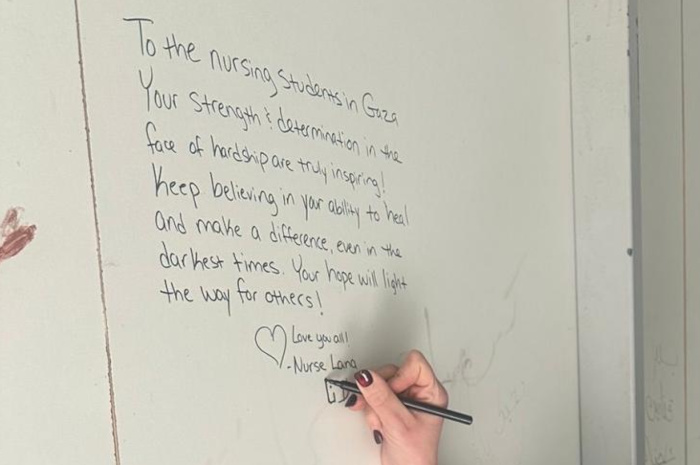 To the nursing students in Gaza
Your strength & determination in the
face of hardship are truly inspiring!
Keep believing in your ability to heal
and make a difference, even in the
darkest times. Your hope will light
the way for others!
Love you all!
-Nurse Lana